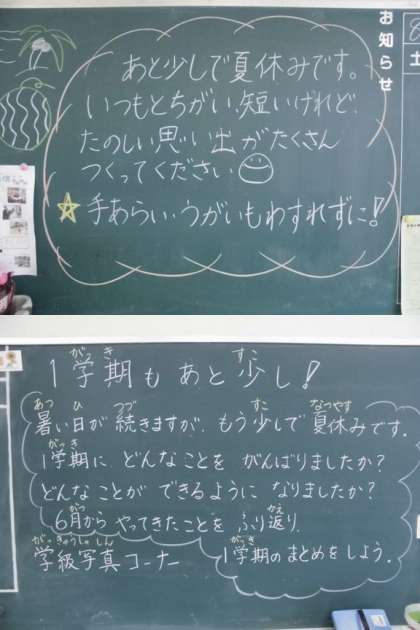 お知らせ
土
あと少しで夏休みです。
いつもとちがい、短いけれど、
たのしい思い出がたくさん
つくってください
☆手あらい、うがいもわすれずに!
1学期もあと少し!
がっき
すこ
暑い日が続きますが、もう少しで夏休みです。
あつ ひ つづ すこ なつやす
1学期に どんなことを がんばりましたか?
がっき
どんなことが できるように なりましたか?
6月から やってきたことを ふり返り、
がつ かえ
1学期の まとめを しよう。
がっき
学級写真コーナー
がっきゅうしゃしん